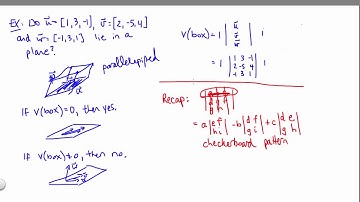 Ex: Do u = [1, 3, -1], v = [2, -5, 4]
and w = [-1, 3, 1] lie in a
plane?
parallelepiped
If V(box) = 0, then yes.
If V(box) ≠ 0, then no.
V(box) = | | u v w | |
= | | 1 3 -1
2 -5 4
-1 3 1 | |
Recap:
= a |e f h i| - b |d f g i| + c |d e g h|
checkerboard pattern